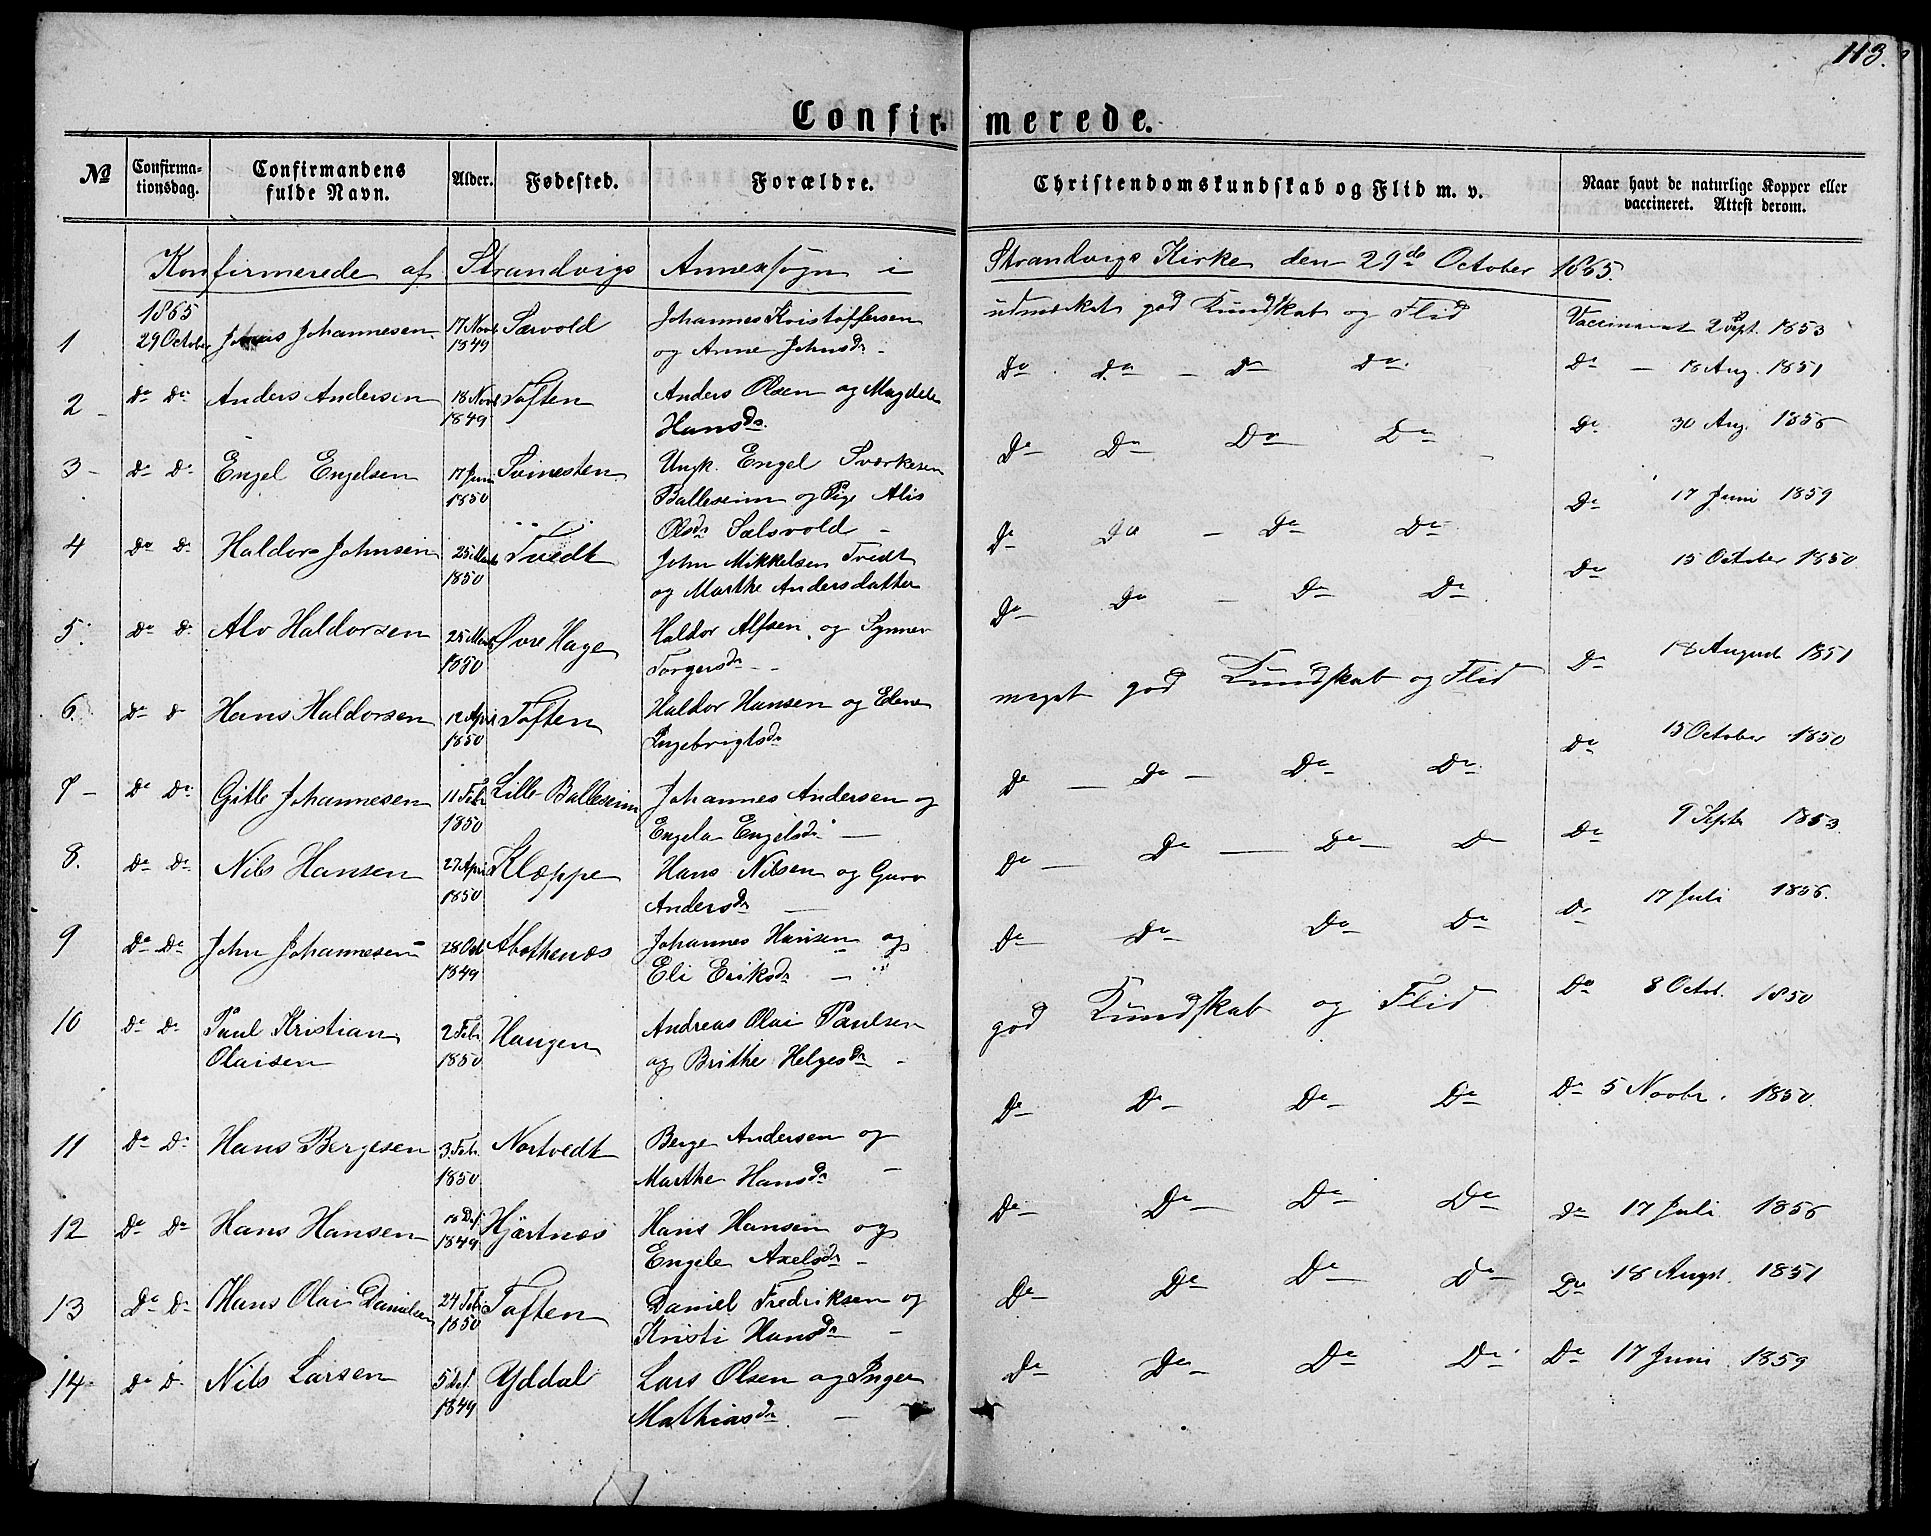 113.
Confirmerede.
No
Confirma-
tionsdag.
Confirmandens
fulde Navn.
Alder.
Fødested.
Forældre.
Christendomskundskab og Flid m. v.
Naar havt de naturlige Kopper eller
vaccineret. Attest derom.
Konfirmerede af Strandvigs Annexsogn i Strandvigs Kirke den 29de October 1865.
1865
1 29 October Johannesen 17 Novb. 1849 Sævold Johannes Kristoffersen og Anne Johnsdr udmærket god Kundskab og Flid Vaccineret 2 Sept. 1853
2 Do Do Anders Andersen 18 Novb 1849 Toften Anders Olsen og Magdele Hansdr. Do Do Do Do Do 18 Aug. 1851
3 Do Do Engel Engelsen 17 Juni 1850 Svinesten Ungk. Engel Sværkesen Balleseim og Pige Alis Olsdr Sælsvold Do Do Do Do Do 30 Aug. 1856
4 Do Do Haldor Johnsen 25 Marts 1850 Tvedt John Mikkelsen Tvedt og Marthe Andersdatter Do Do Do Do Do 17 Juni 1859
5. Do Do Alv Haldorsen 25 Marts 1850 Øvre Hage Haldor Alfsen og Synnev Torgersdr Do Do Do Do Do 15 October 1850
6. Do Do Hans Haldorsen 12 April 1850 Toften Haldor Hansen og Edene Ingebrigtsdr meget god Kundskab og Flid Do 18 August 1851
7 Do Do Gitle Johannesen 11 Febr 1850 Lille Balleseim Johannes Andersen og Engela Engelsdr Do Do Do Do Do 15 October 1850
8. Do Do Nils Hansen 27 April 1850 Kleppe Hans Nilsen og Guro Andersdr Do Do Do Do Do 9 Septb 1853.
9 Do Do John Johannesen 28 Octb 1849 Johannes Hansen og Eli Eriksdr Do Do Do Do Do 17 Juli 1856.
10 Do Do Paul Kristian Olaisen 2 Febr 1850 Haugen Andreas Olai Paulsen og Brithe Helgesdr god Kundskab og Flid Do 8 Octob. 1850
11 Do Do Hans Bergesen 3 Febr. 1850 Nortvedt Berge Andersen og Marthe Hansdr Do Do Do Do Do 5 Novbr. 1850.
12 Do Do Hans Hansen 1849 Hjartnæs Hans Hansen og Engele Axelsdr Do Do Do Do Do 17 Juli 1856
13 Do Do Hans Olai Danielsen 24 Febr 1850 Toften Daniel Fredriksen og Kristi Hansdr Do Do Do Do Do 18 Augst. 1851
14 Do Do Nils Larsen 5 1849 Yddal Lars Olsen og Inger Mathiasdr. Do Do Do Do Do 17 Juni 1859